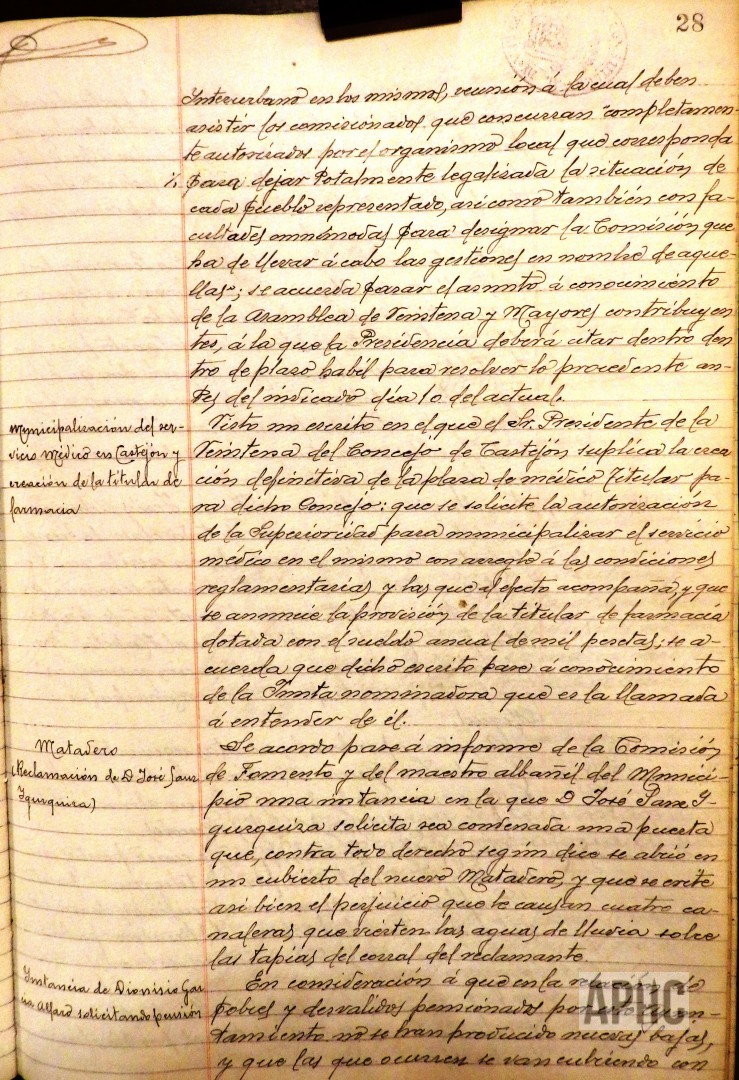 28
Interurbano en los mismos, reunión á la cual deben
asistir los comisionados que concurran completamen-
te autorizados por el organismo local que corresponda
%. para dejar totalmente legalizada la situación de
cada pueblo representado, asi como también con fa-
cultades omnimodas para designar la Comisión que
ha de llevar á cabo las gestiones en nombre de aque-
llas; se acuerda pasar el asunto á conocimiento
de la Asamblea de Veintena y Mayores contribuyen
tes, á la que la Presidencia deberá citar dentro den
tro de plazo habil para resolver lo procedente an-
tes del indicado dia 10 del actual.
Municipalización del ser-
vicio Médico en Castejón y
creación de la titular de
farmacia
Visto un escrito en el que el Sr. Presidente de la
Veintena del Concejo de Castejón suplica la crea
ción definitiva de la plaza de médico titular pa-
ra dicho Concejo: que se solicite la autorización
de la Superioridad para municipalizar el servicio
médico en el mismo con arreglo á las condiciones
reglamentarias y las que al efecto acompaña, y que
se anuncie la provisión de la titular de farmacia
dotada con el sueldo anual de mil pesetas; se a-
cuerda que dicho escrito pase á conocimiento
de la Junta nominadora que es la llamada
á entender de él.
Matadero
(Reclamación de D José Sanz
Ygurquiza)
Se acordo pase á informe de la Comisión
de Fomento y del maestro albañil del Munici-
pio una instancia en la que D José Y-
gurquiza solicita sea condenada una puerta
que, contra todo derecho según dice se abrió en
un cubierto del nuevo Matadero, y que se evite
asi bien el perjuicio que le causan cuatro ca-
naleras que vierten las aguas de lluvia sobre
las tapias del corral del reclamante.
Instancia de Dionisio Gar
cia Alfaro solicitando pensión
En consideración á que en la relación de
pobres y desvalidos pensionados por el Ayun-
tamiento no se han producido nuevas bajas,
y que las que ocurren se van cubriendo con
APHC